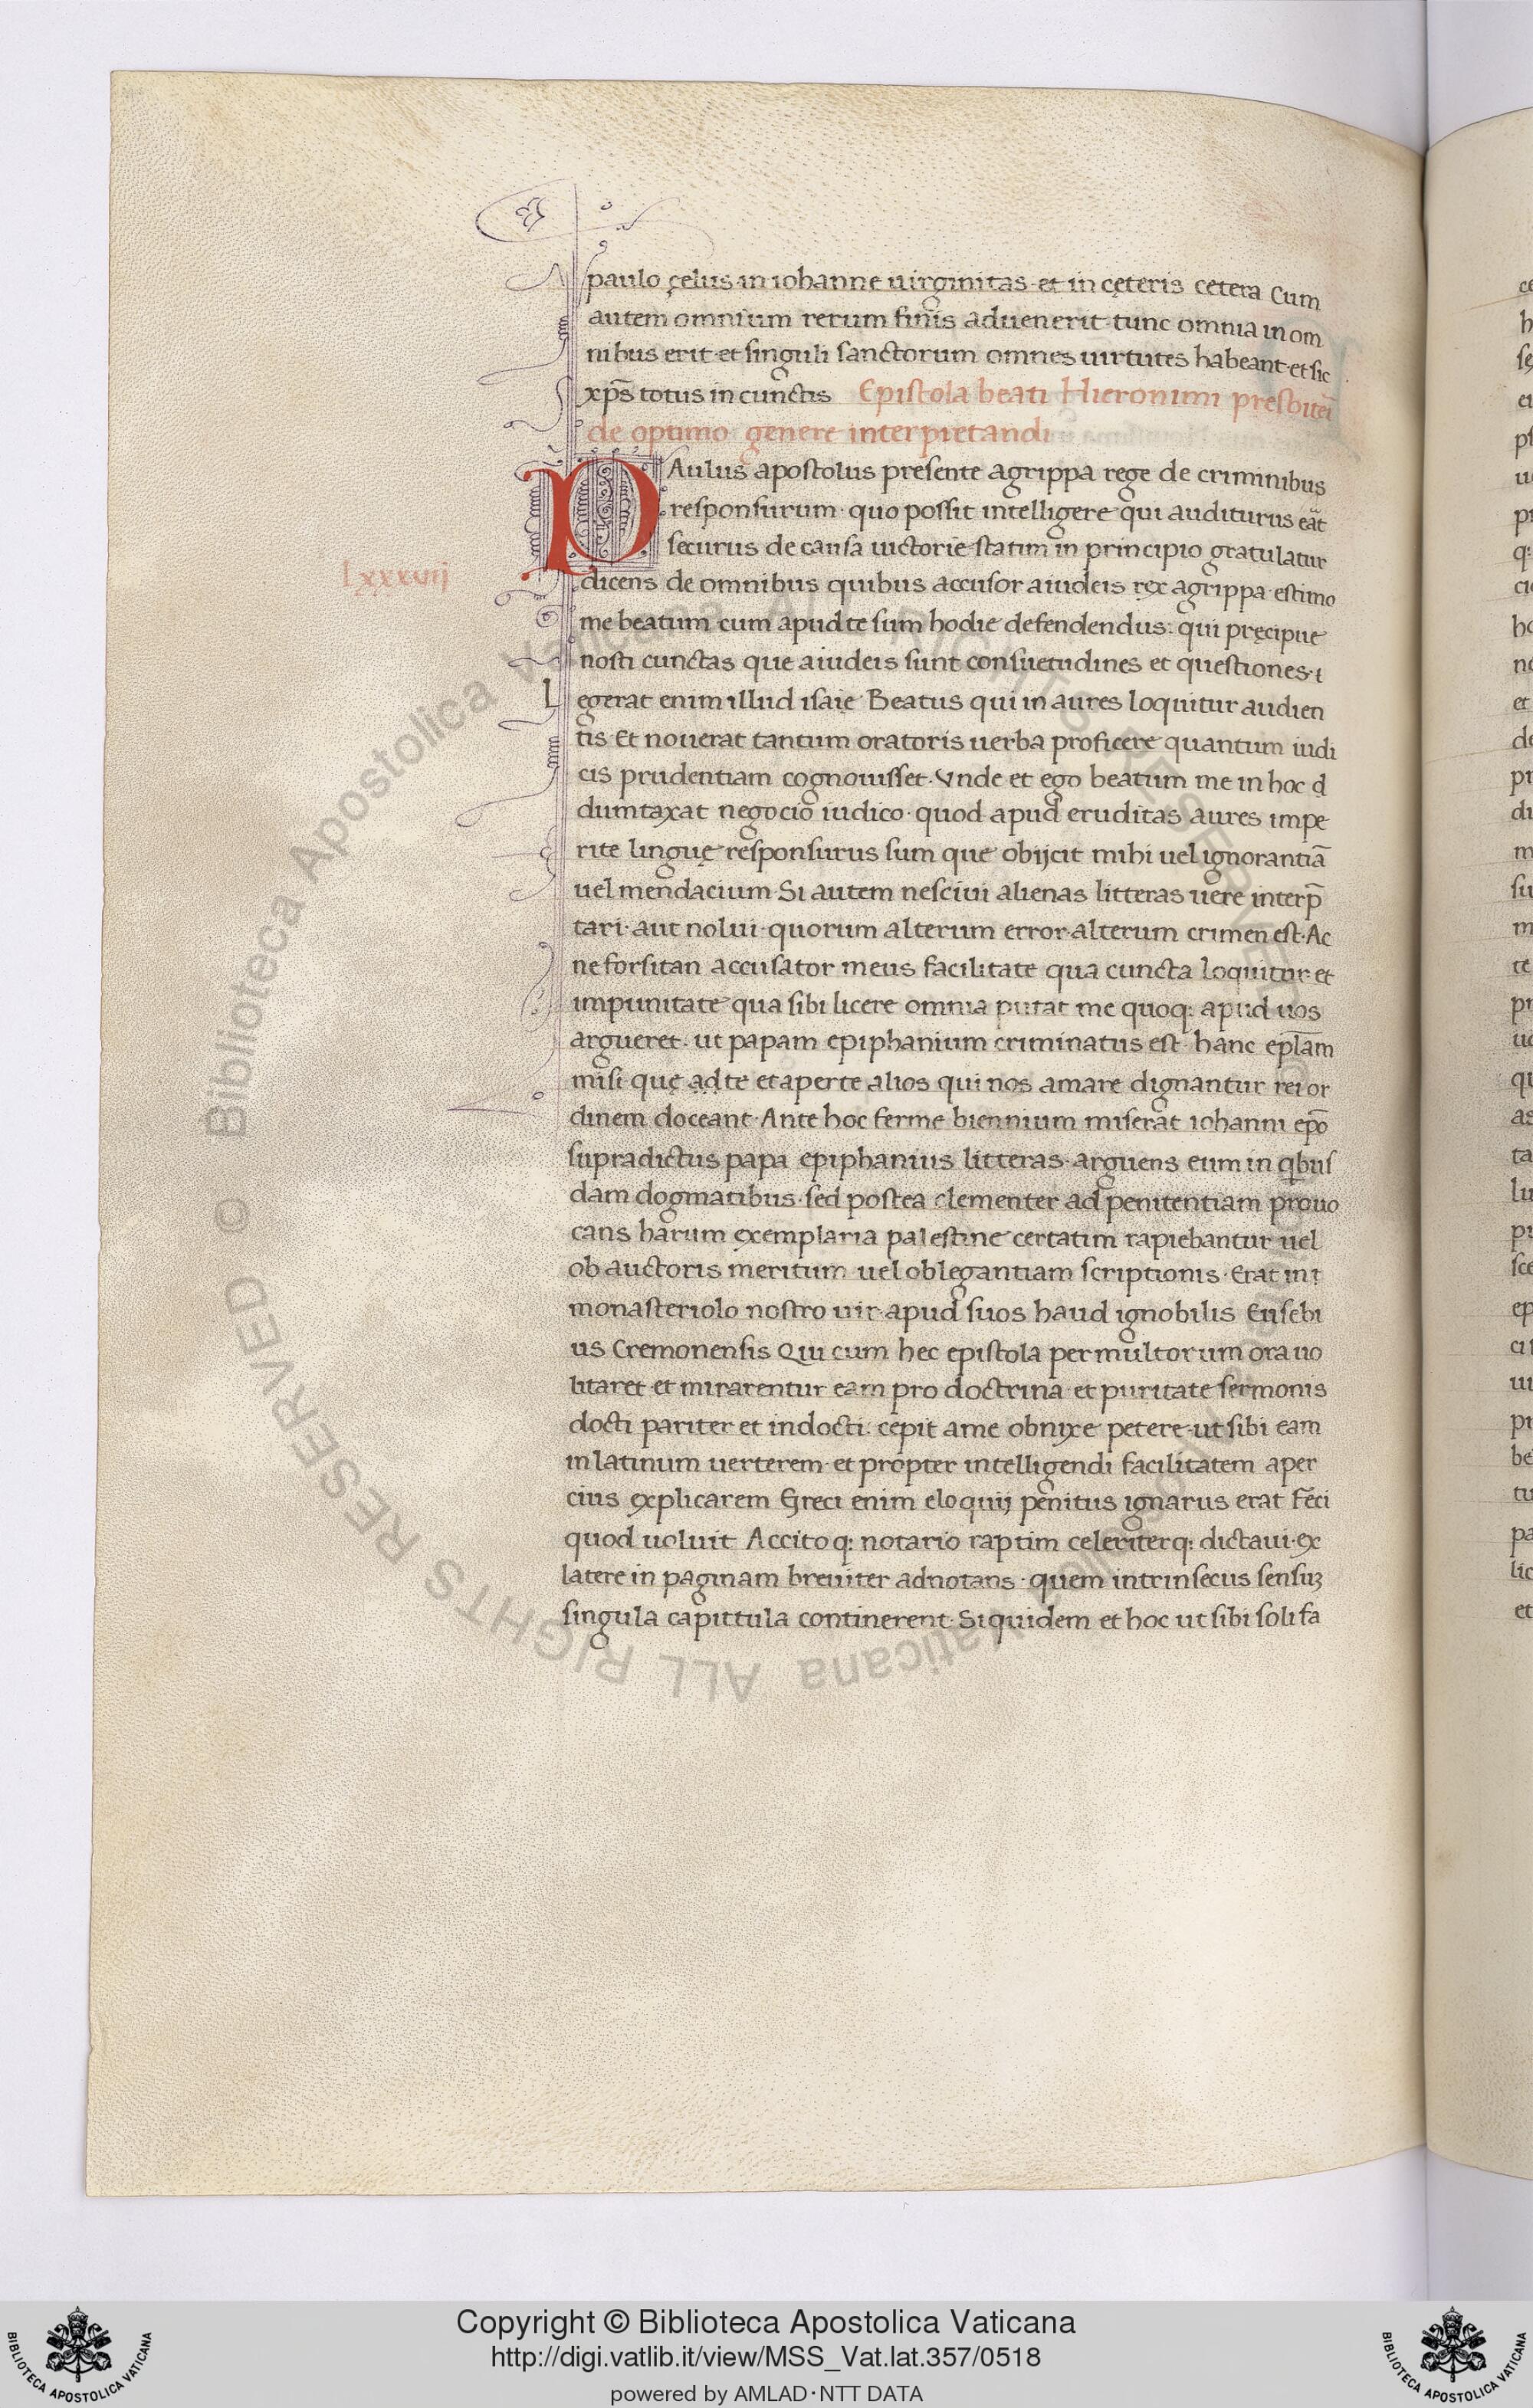 paulo çelus in iohanne uirginitas et in cęteris cetera Cum
autem omnium rerum finis aduenerit tunc omnia in om
nibus erit et singuli sanctorum omnes uirtutes habeant et sic
xp̄s totus in cunctis Epistola beati Hieronimi presbiteri
de optimo genere interpretandi
PAulus apostolus presente agrippa rege de criminibus
responsurum quo possit intelligere qui auditurus eāt
securus de causa uictorie statim in principio gratulatur
Lxxxvij
dicens de omnibus quibus accusor a iudeis rex agrippa estimo
me beatum cum apud te sum hodie defendendus: qui pręcipue
nosti cunctas que a iudeis sunt consuetudines et questiones· i
Legerat enim illud isaię Beatus qui in aures loquitur audien
tis Et nouerat tantum oratoris uerba proficere quantum iudi
cis prudentiam cognouisset. Vnde et ego beatum me in hoc d
dumtaxat negocio iudico· quod apud eruditas aures impe
rite linguę responsurus sum que obijcit mihi uel ignorantiā
uel mendacium Si autem nesciui alienas litteras uere interp̄
tari· aut nolui· quorum alterum error· alterum crimen est· Ac
ne forsitan accusator meus facilitate qua cuncta loquitur et
impunitate qua sibi licere omnia putat me quoq; apud uos
argueret· ut papam epiphanium criminatus est hanc epl̄am
misi quę ad te et aperte alios qui nos amare dignantur rei or
dinem doceant· Ante hoc ferme biennium miserat iohanni ep̄o
supradictus papa epiphanius litteras· arguens eum in qbus
dam dogmatibus· sed postea clementer ad penitentiam prouo
cans harum exemplaria palestine certatim rapiebantur uel
ob auctoris meritum uel oblegantiam scriptionis· Erat in i
monasteriolo nostro uir apud suos haud ignobilis Eusebi
us Cremonensis Qui cum hec epistola per multorum ora uo
litaret et mirarentur eam pro doctrina et puritate sermonis
docti pariter et indocti: cepit a me obnixe petere ut sibi eam
in latinum uerterem· et propter intelligendi facilitatem aper
cius explicarem Greci enim eloquij penitus ignarus erat Feci
quod uoluit Accitoq; notario raptim celeriterq; dictaui· ex
latere in paginam breuiter adnotans· quem intrinsecus sensuʒ
singula capittula continerent· Siquidem et hoc ut sibi soli fa
© Biblioteca Apostolica Vaticana ALL RIGHTS RESERVED
Copyright © Biblioteca Apostolica Vaticana
http://digi.vatlib.it/view/MSS_Vat.lat.357/0518
powered by AMLAD·NTT DATA
BIBLIOTECA APOSTOLICA VATICANA
BIBLIOTECA APOSTOLICA VATICANA